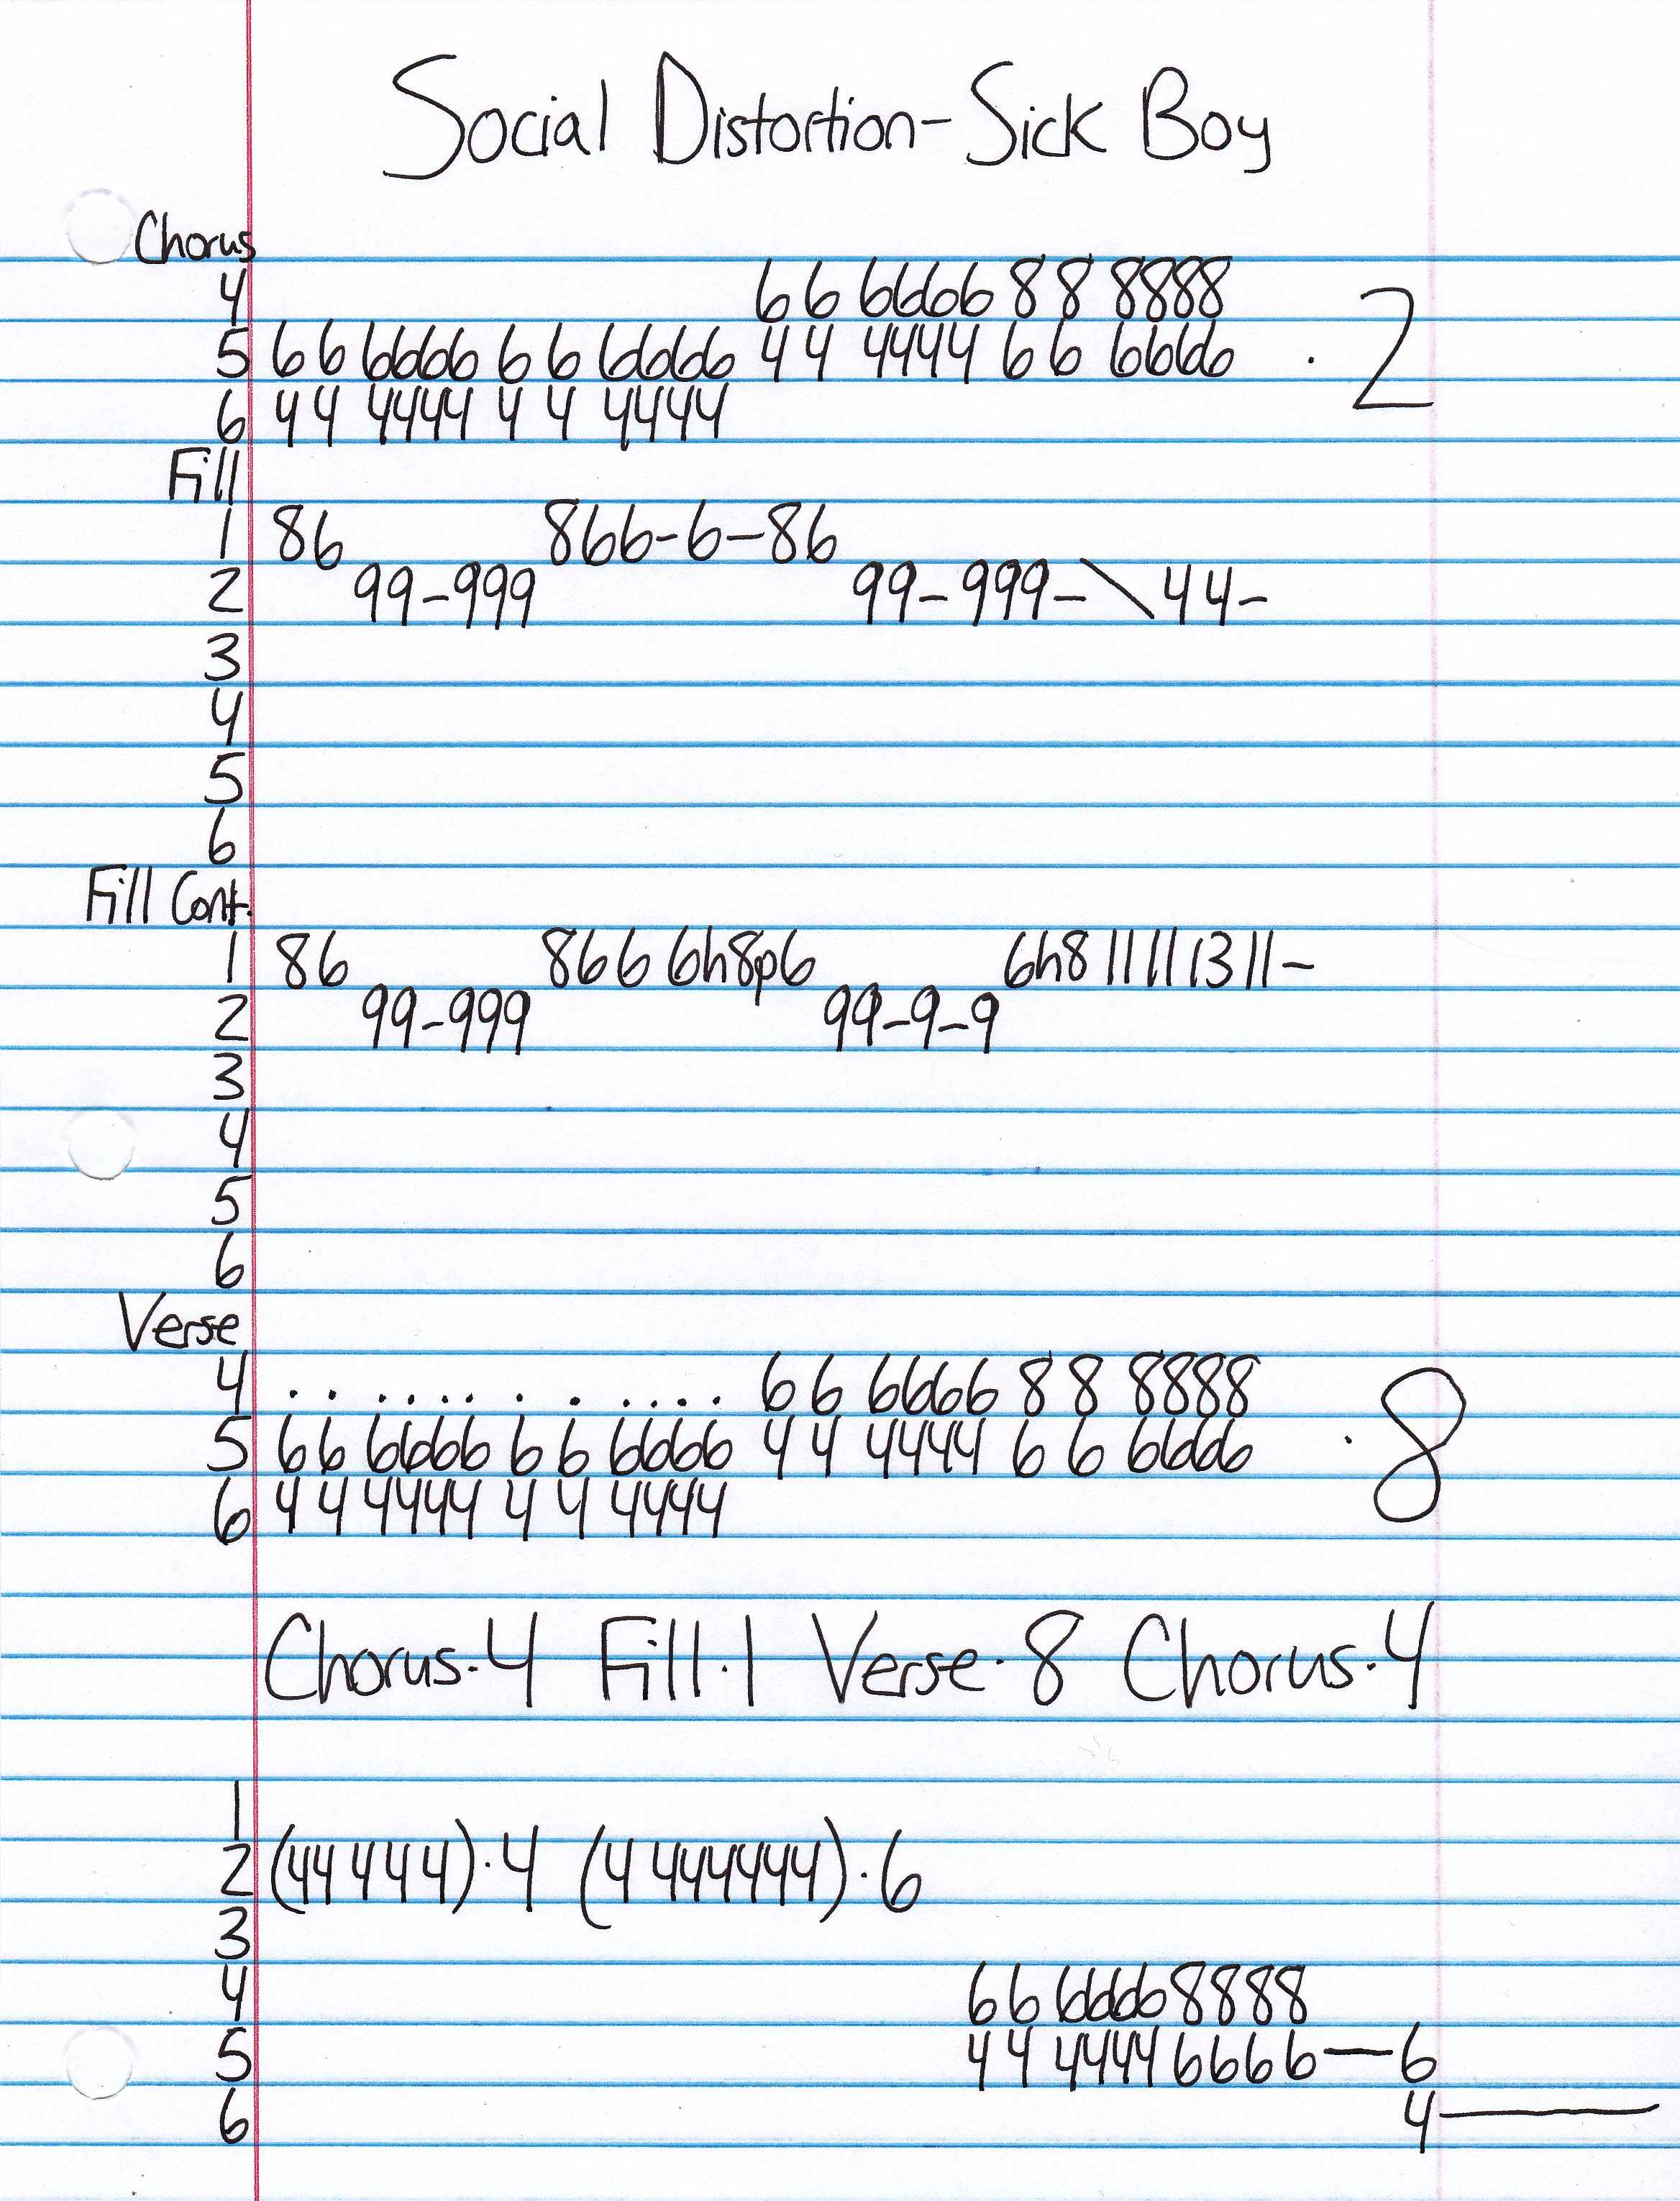 Social Distortion-Sick Boy
Chorus
4 6 6 6666 8 8 8888
5 6 6 6666 6 6 6666 4 4 4444 6 6 6666 . 2
6 4 4 4444 4 4 4444
Fill
1 86 866-6-86
2 99-999 99-999-\44-
3
4
5
6
Fill Cont.
1 86 866 6h8p6 6h8 11 11 13 11-
2 99-999 99-9-9
3
4
5
6
Verse
4 . . . . . . . . . . . . 6 6 6666 8 8 8888
5 6 6 6666 6 6 6666 4 4 4444 6 6 6666 . 8
6 4 4 4444 4 4 4444
Chorus·4 Fill·1 Verse·8 Chorus·4
1
2 (44 4 4 4)·4 (4 444444)·6
3
4 6 6 6666 8 8 8 8
5 4 4 4444 6 6 6 6—6
6 4—